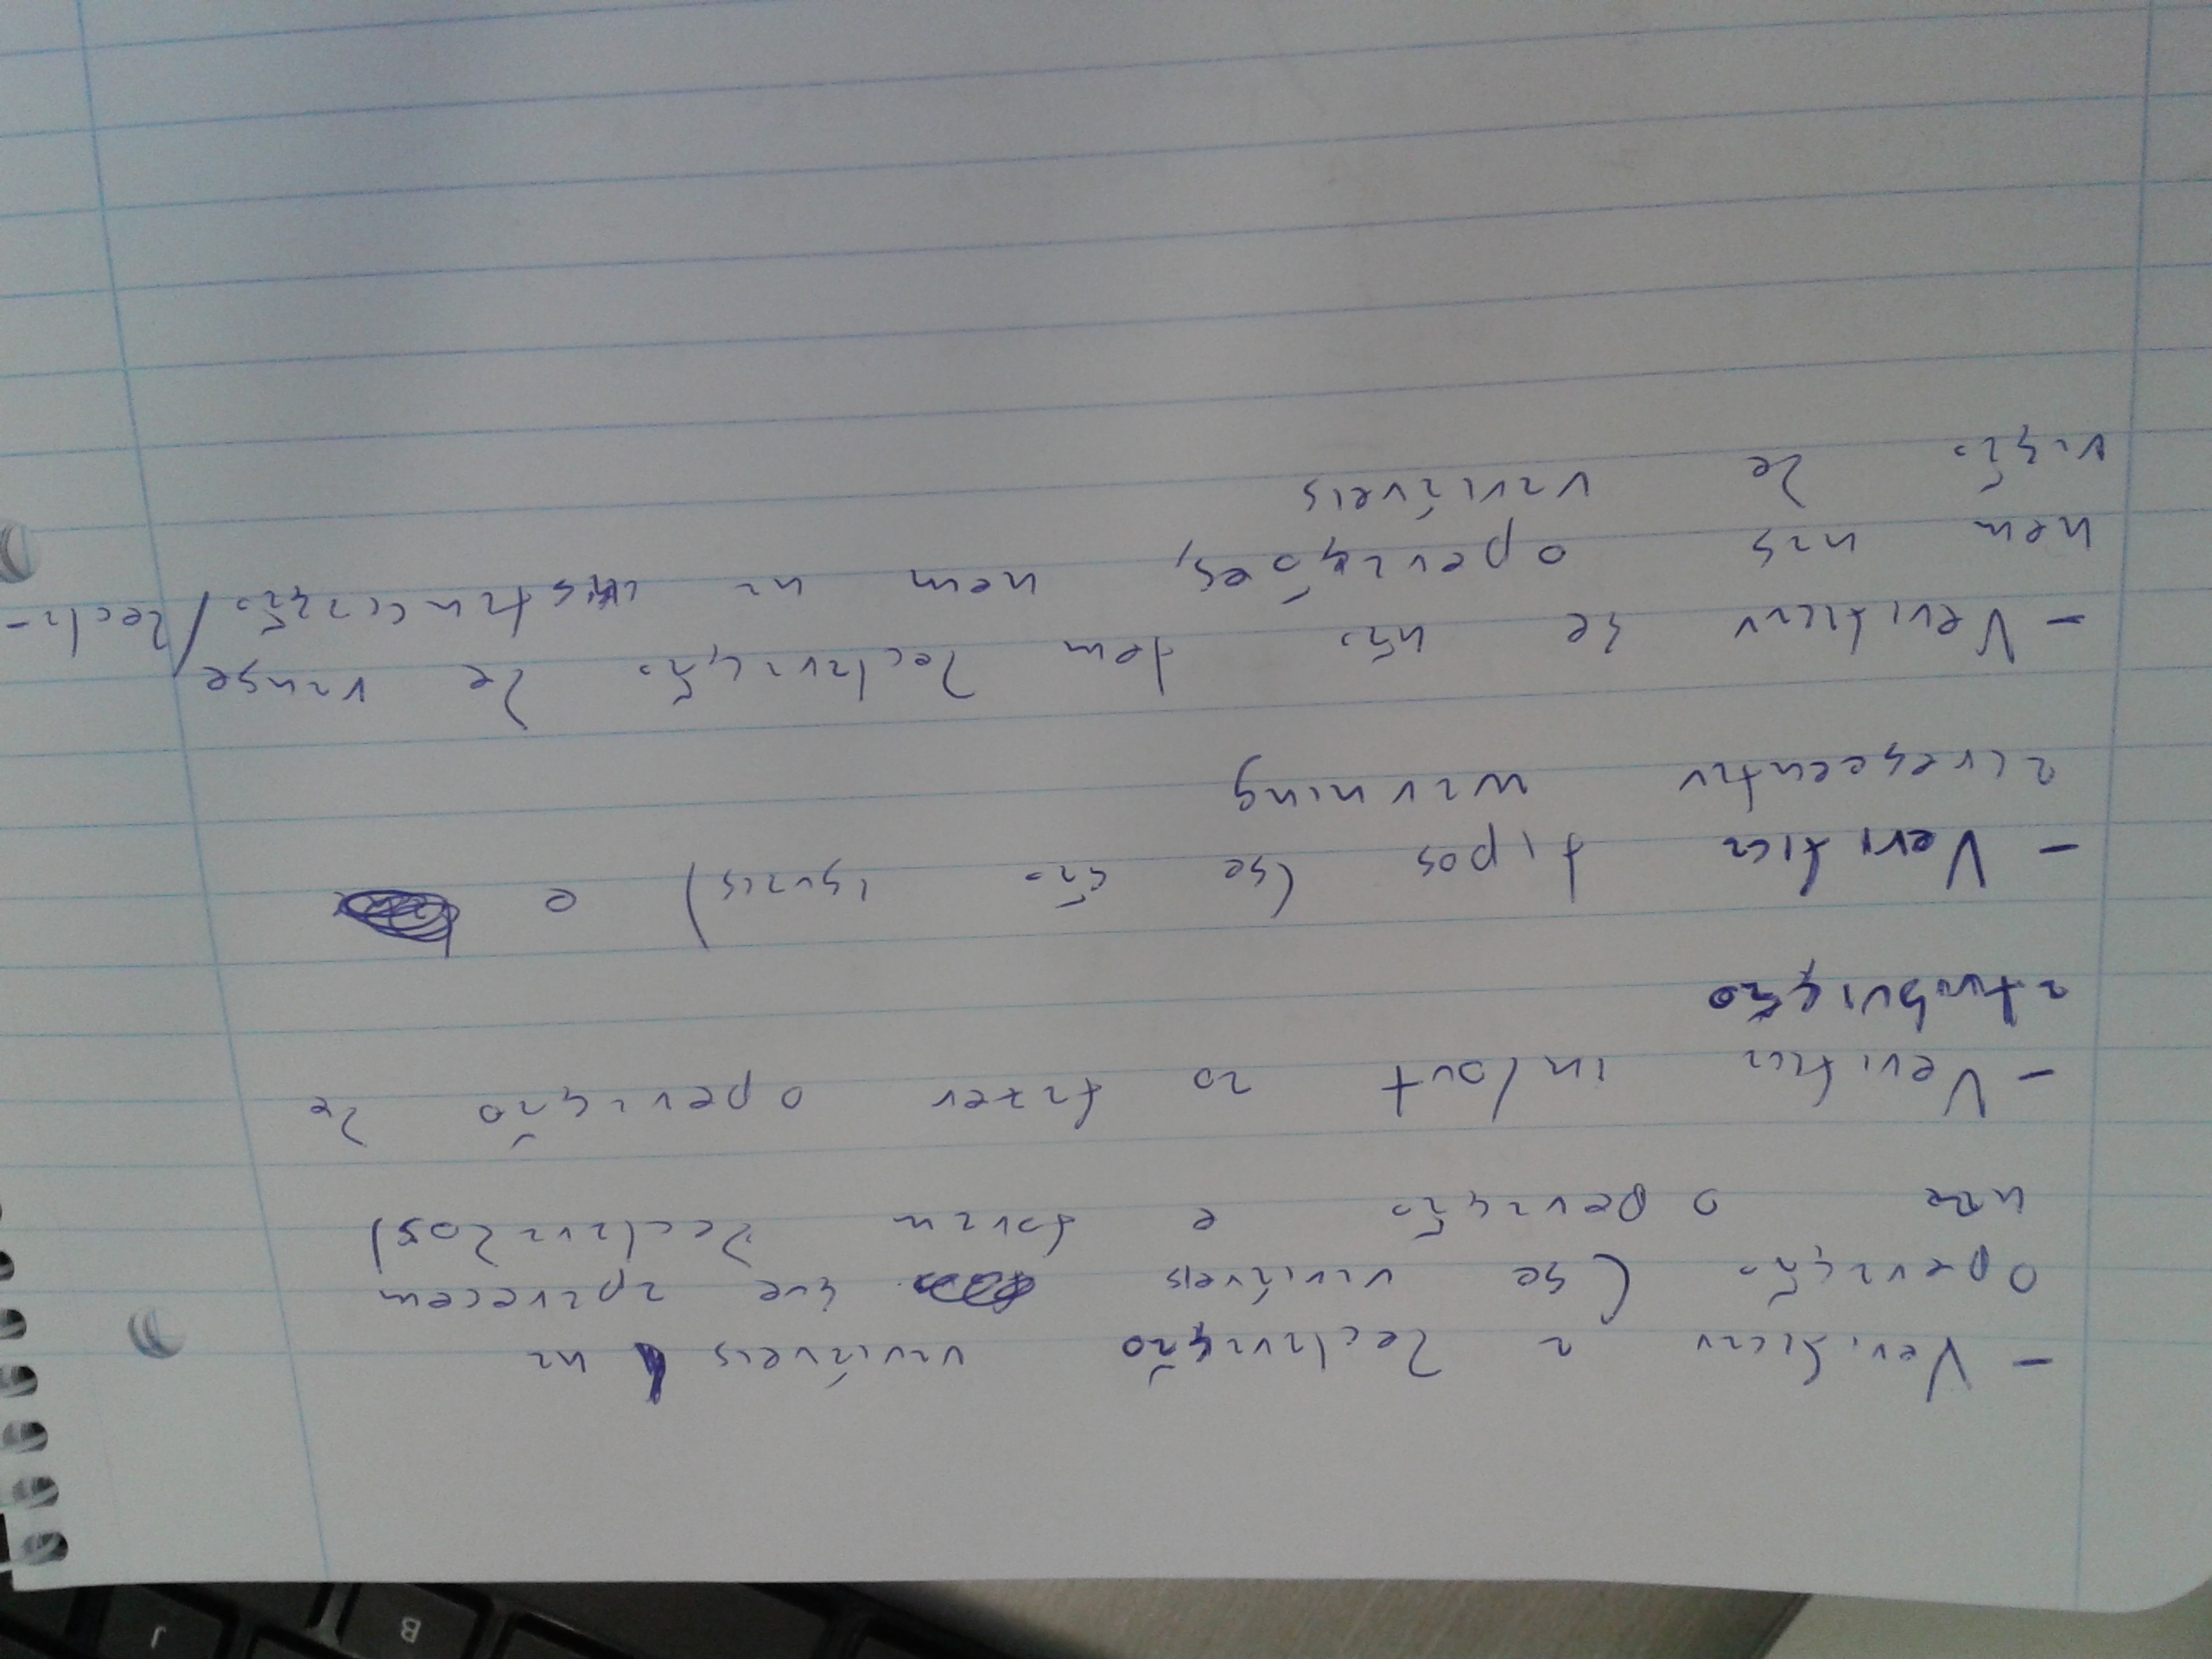 - Verificar a declaração variáveis na
operação (se variáveis que aparecem
na operação e foram declarados)
- Verifica in/out ao fazer operação de
atribuição
- Verifica tipos (se são iguais) e
acrescentar warning
- Verificar se não tem declaração de range,
nem nas operações, nem na instanciação/decla-
ração de variáveis
B
J